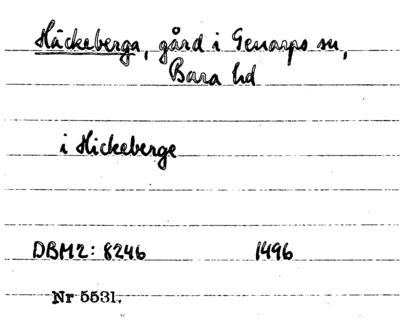 Häckeberga, gård i Genarps sn,
Bara hd
i Hickeberge
DBM2: 8246 1496
Nr 5531.